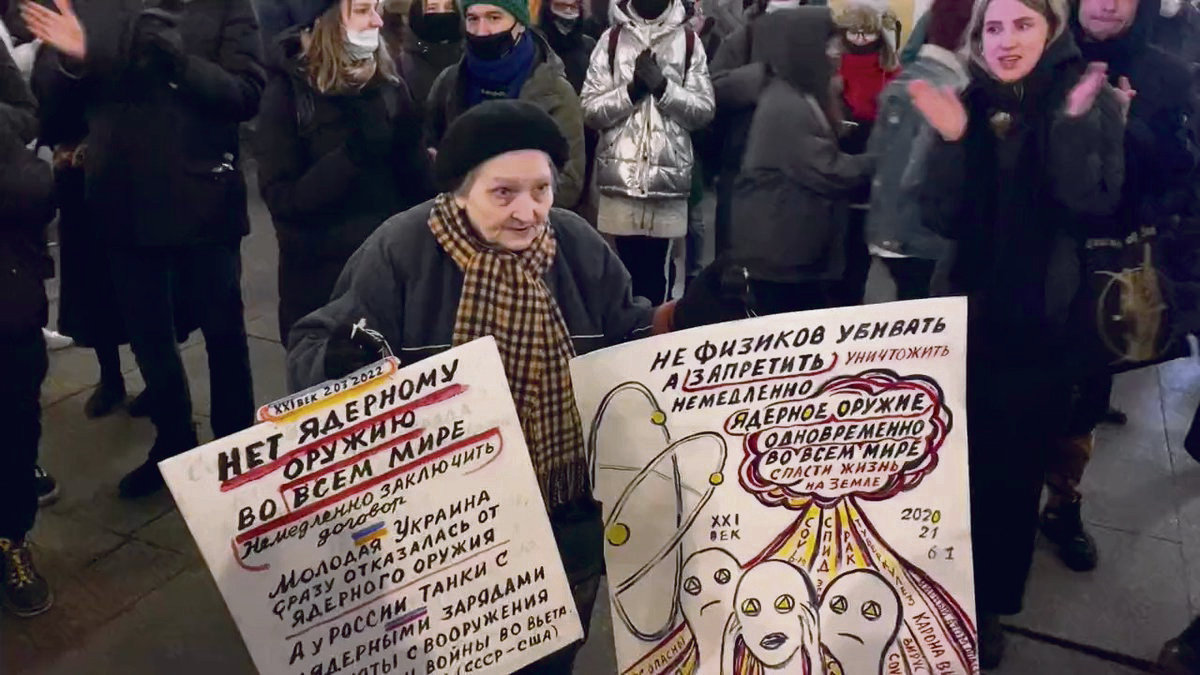 XXI ВЕК 2 03 2022
НЕТ ЯДЕРНОМУ
ОРУЖИЮ
ВО ВСЕМ МИРЕ
НЕМЕДЛЕННО ЗАКЛЮЧИТЬ
ДОГОВОР
МОЛОДАЯ УКРАИНА
СРАЗУ ОТКАЗАЛАСЬ ОТ
ЯДЕРНОГО ОРУЖИЯ
А У РОССИИ ТАНКИ С
ЯДЕРНЫМИ ЗАРЯДАМИ
С ВООРУЖЕНИЯ
ВОЙНЫ ВО ВЬЕТА.
(СССР-США)
НЕ ФИЗИКОВ УБИВАТЬ
А ЗАПРЕТИТЬ УНИЧТОЖИТЬ
НЕМЕДЛЕННО
ЯДЕРНОЕ ОРУЖИЕ
ОДНОВРЕМЕННО
ВО ВСЕМ МИРЕ
СПАСТИ ЖИЗНЬ
НА ЗЕМЛЕ
XXI
ВЕК
СПИД
РАК
2020
21
6 1
КАРОНА
ВИРУС